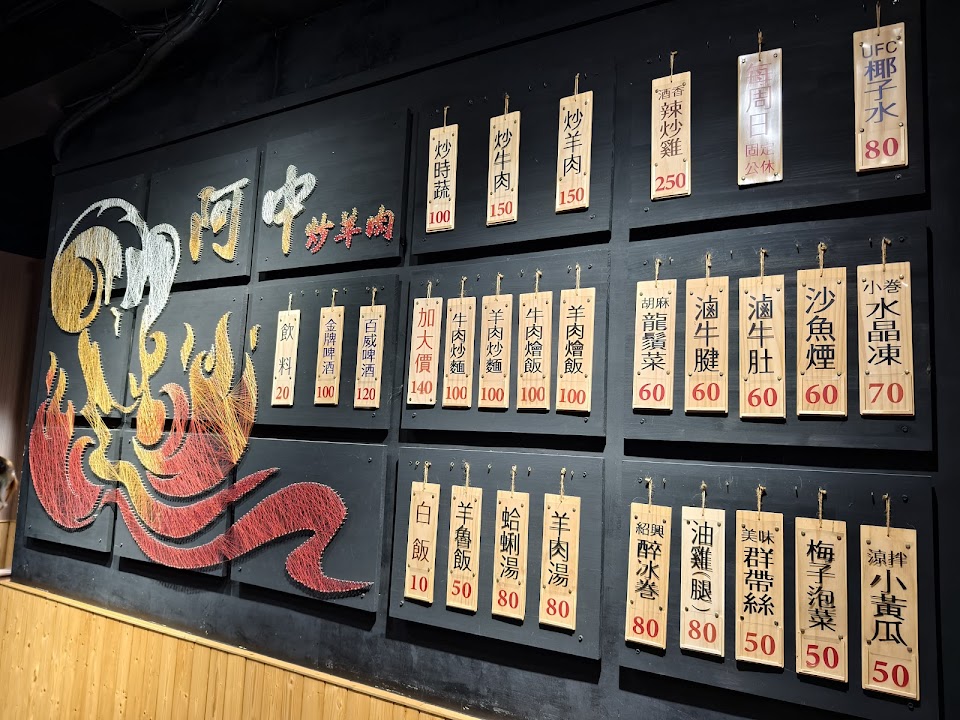 阿中
炒羊肉
炒時蔬
100
炒牛肉
150
炒羊肉
150
酒香
辣炒雞
250
每周日
固定
公休
UFC
椰子水
80
飲料
20
金牌啤酒
100
百威啤酒
120
加大價
140
牛肉炒麵
100
羊肉炒麵
100
牛肉燴飯
100
羊肉燴飯
100
胡麻
龍鬚菜
60
滷牛腱
60
滷牛肚
60
沙魚煙
60
小卷
水晶凍
70
白飯
10
羊魯飯
50
蛤蜊湯
80
羊肉湯
80
紹興
醉冰卷
80
油雞(腿)
80
美味
群帶絲
50
梅子泡菜
50
涼拌
小黃瓜
50